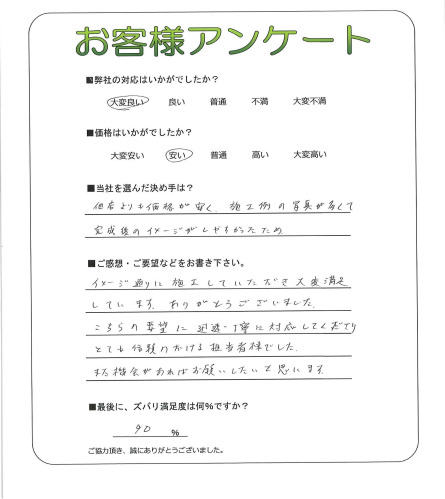 お客様アンケート
■弊社の対応はいかがでしたか？
大変良い 良い 普通 不満 大変不満
■価格はいかがでしたか？
大変安い 安い 普通 高い 大変高い
■当社を選んだ決め手は？
他店よりも価格が安く、施工例の写真が多くて
完成後のイメージがしやすかったため
■ご感想・ご要望などをお書き下さい。
イメージ通りに施工していただき大変満足
しています。ありがとうございました。
こちらの要望に迅速・丁寧に対応してくださり
とても信頼のおける担当者様でした。
また機会があればお願いしたいと思います。
■最後に、ズバリ満足度は何%ですか？
90 %
ご協力頂き、誠にありがとうございました。